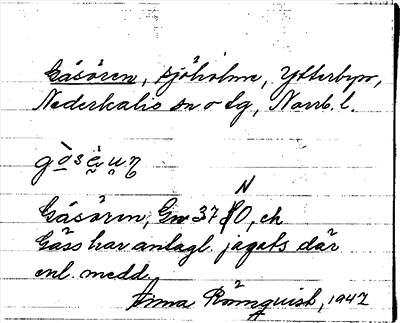 Gåsören, sjöholme, Ytterbyn,
Nederkalix sn o tg, Norrb. l.
N
Gåsören, Gm 37 O, ek
Gäss har anlagl. jagats där
enl. medd.
Anna Römquist, 1947